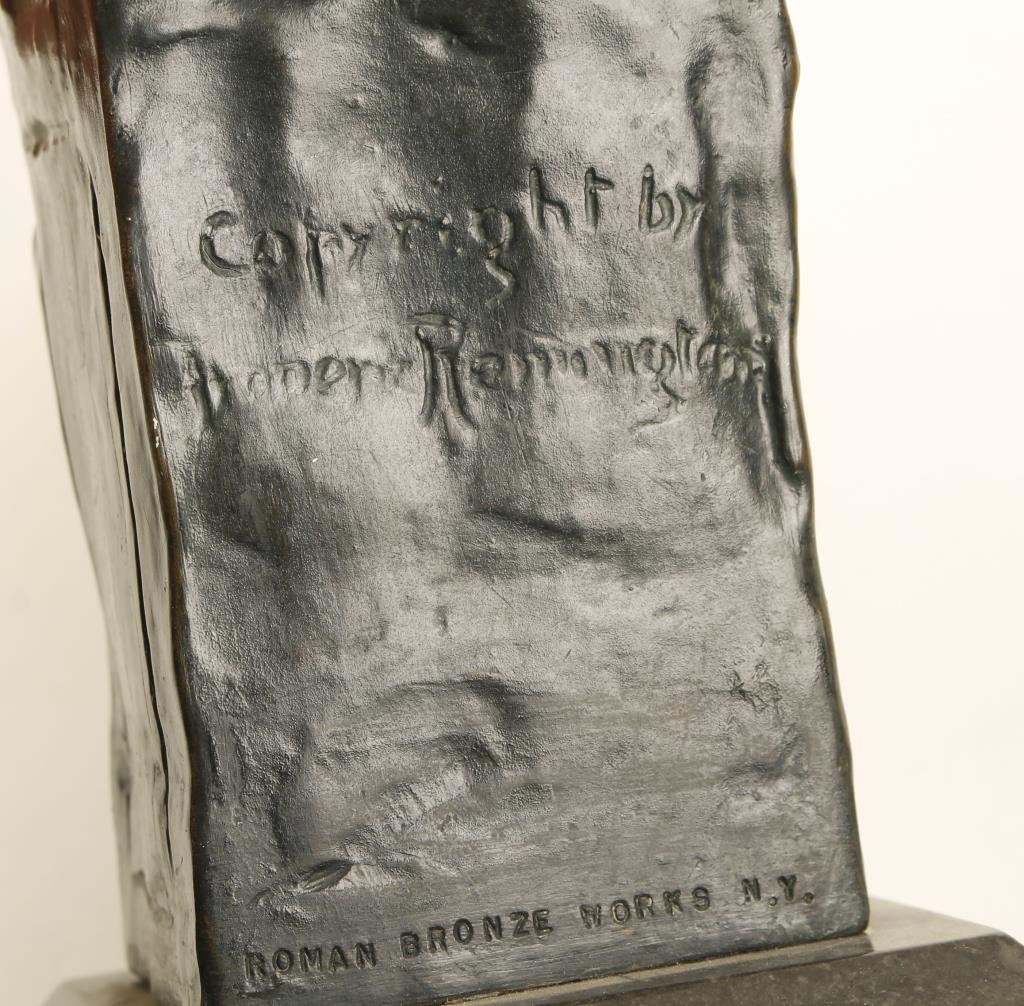 Copyright by
Frederic Remington
ROMAN BRONZE WORKS N.Y.